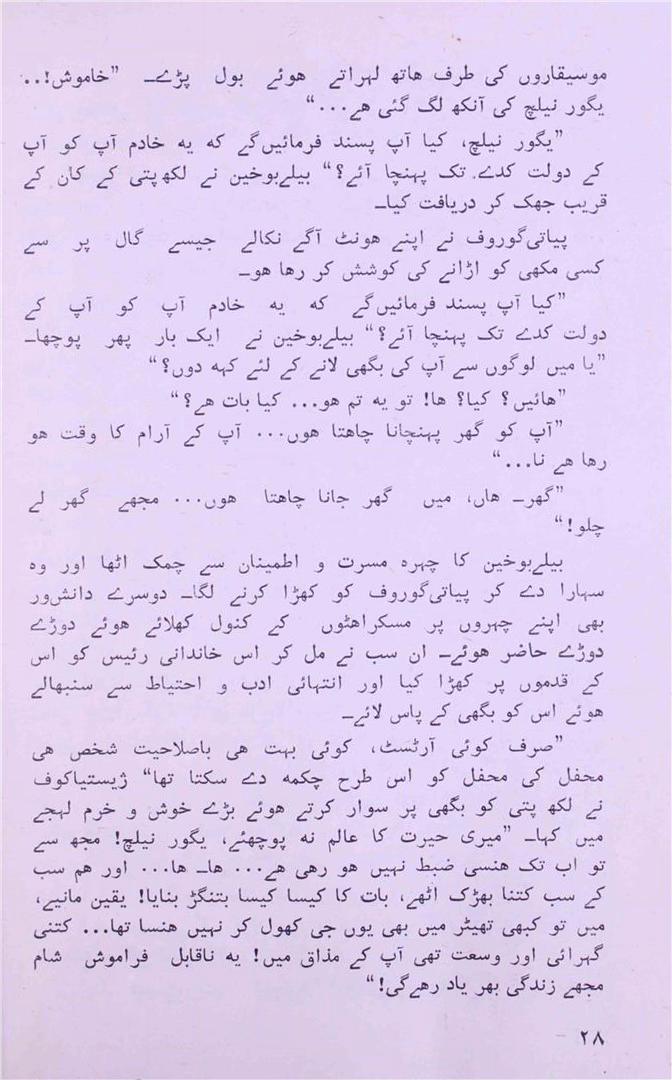 موسیقاروں کی طرف ھاتھ لہراتے ھوئے بول پڑے۔ ”خاموش!..
یگور نیلچ کی آنکھ لگ گئی ھے...“
”یگور نیلچ، کیا آپ پسند فرمائیںگے کہ یہ خادم آپ کو آپ
کے دولت کدے تک پہنچا آئے؟“ بیلےبوخین نے لکھپتی کے کان کے
قریب جھک کر دریافت کیا۔
پیاتیگوروف نے اپنے ھونٹ آگے نکالے جیسے گال پر سے
کسی مکھی کو اڑانے کی کوشش کر رھا ھو۔
”کیا آپ پسند فرمائیںگے کہ یہ خادم آپ کو آپ کے
دولت کدے تک پہنچا آئے؟“ بیلےبوخین نے ایک بار پھر پوچھا۔
”یا میں لوگوں سے آپ کی بگھی لانے کے لئے کہہ دوں؟“
”ھائیں؟ کیا؟ ھا! تو یہ تم ھو... کیا بات ھے؟“
”آپ کو گھر پہنچانا چاھتا ھوں... آپ کے آرام کا وقت ھو
رھا ھے نا...“
”گھر۔ ھاں، میں گھر جانا چاھتا ھوں... مجھے گھر لے
چلو!“
بیلےبوخین کا چہرہ مسرت و اطمینان سے چمک اٹھا اور وہ
سہارا دے کر پیاتیگوروف کو کھڑا کرنے لگا۔ دوسرے دانشور
بھی اپنے چہروں پر مسکراھٹوں کے کنول کھلائے ھوئے دوڑے
دوڑے حاضر ھوئے۔ ان سب نے مل کر اس خاندانی رئیس کو اس
کے قدموں پر کھڑا کیا اور انتہائی ادب و احتیاط سے سنبھالے
ھوئے اس کو بگھی کے پاس لائے۔
”صرف کوئی آرٹسٹ، کوئی بہت ھی باصلاحیت شخص ھی
محفل کی محفل کو اس طرح چکمہ دے سکتا تھا“ ژیستیاکوف
نے لکھ پتی کو بگھی پر سوار کرتے ھوئے بڑے خوش و خرم لہجے
میں کہا۔ ”میری حیرت کا عالم نہ پوچھئے، یگور نیلچ! مجھ سے
تو اب تک ھنسی ضبط نہیں ھو رھی ھے... ھا۔ ھا... اور ھم سب
کے سب کتنا بھڑک اٹھے، بات کا کیسا کیسا بتنگڑ بنایا! یقین مانیے،
میں تو کبھی تھیٹر میں بھی یوں جی کھول کر نہیں ھنسا تھا... کتنی
گہرائی اور وسعت تھی آپ کے مذاق میں! یہ ناقابل فراموش شام
مجھے زندگی بھر یاد رھےگی!“
۲۸